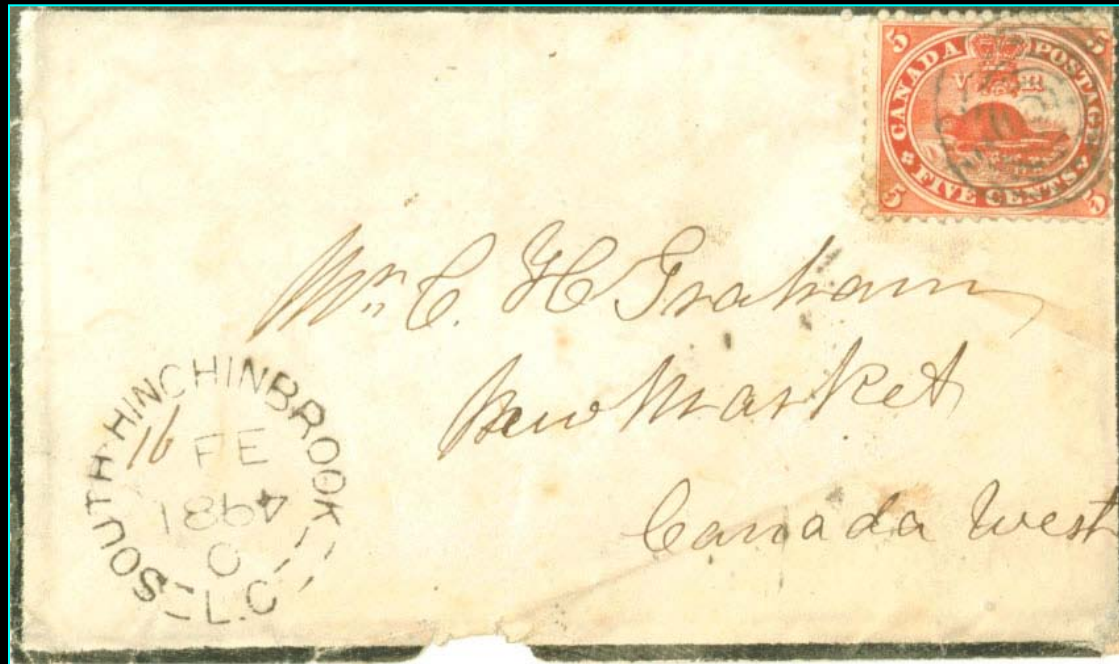 5 5
CANADA POSTAGE
V R
FIVE CENTS
5 5
Mr. C. H Graham
New Market
Canada West
SOUTH-HINCHINBROOK
16 FE
1864
L.C